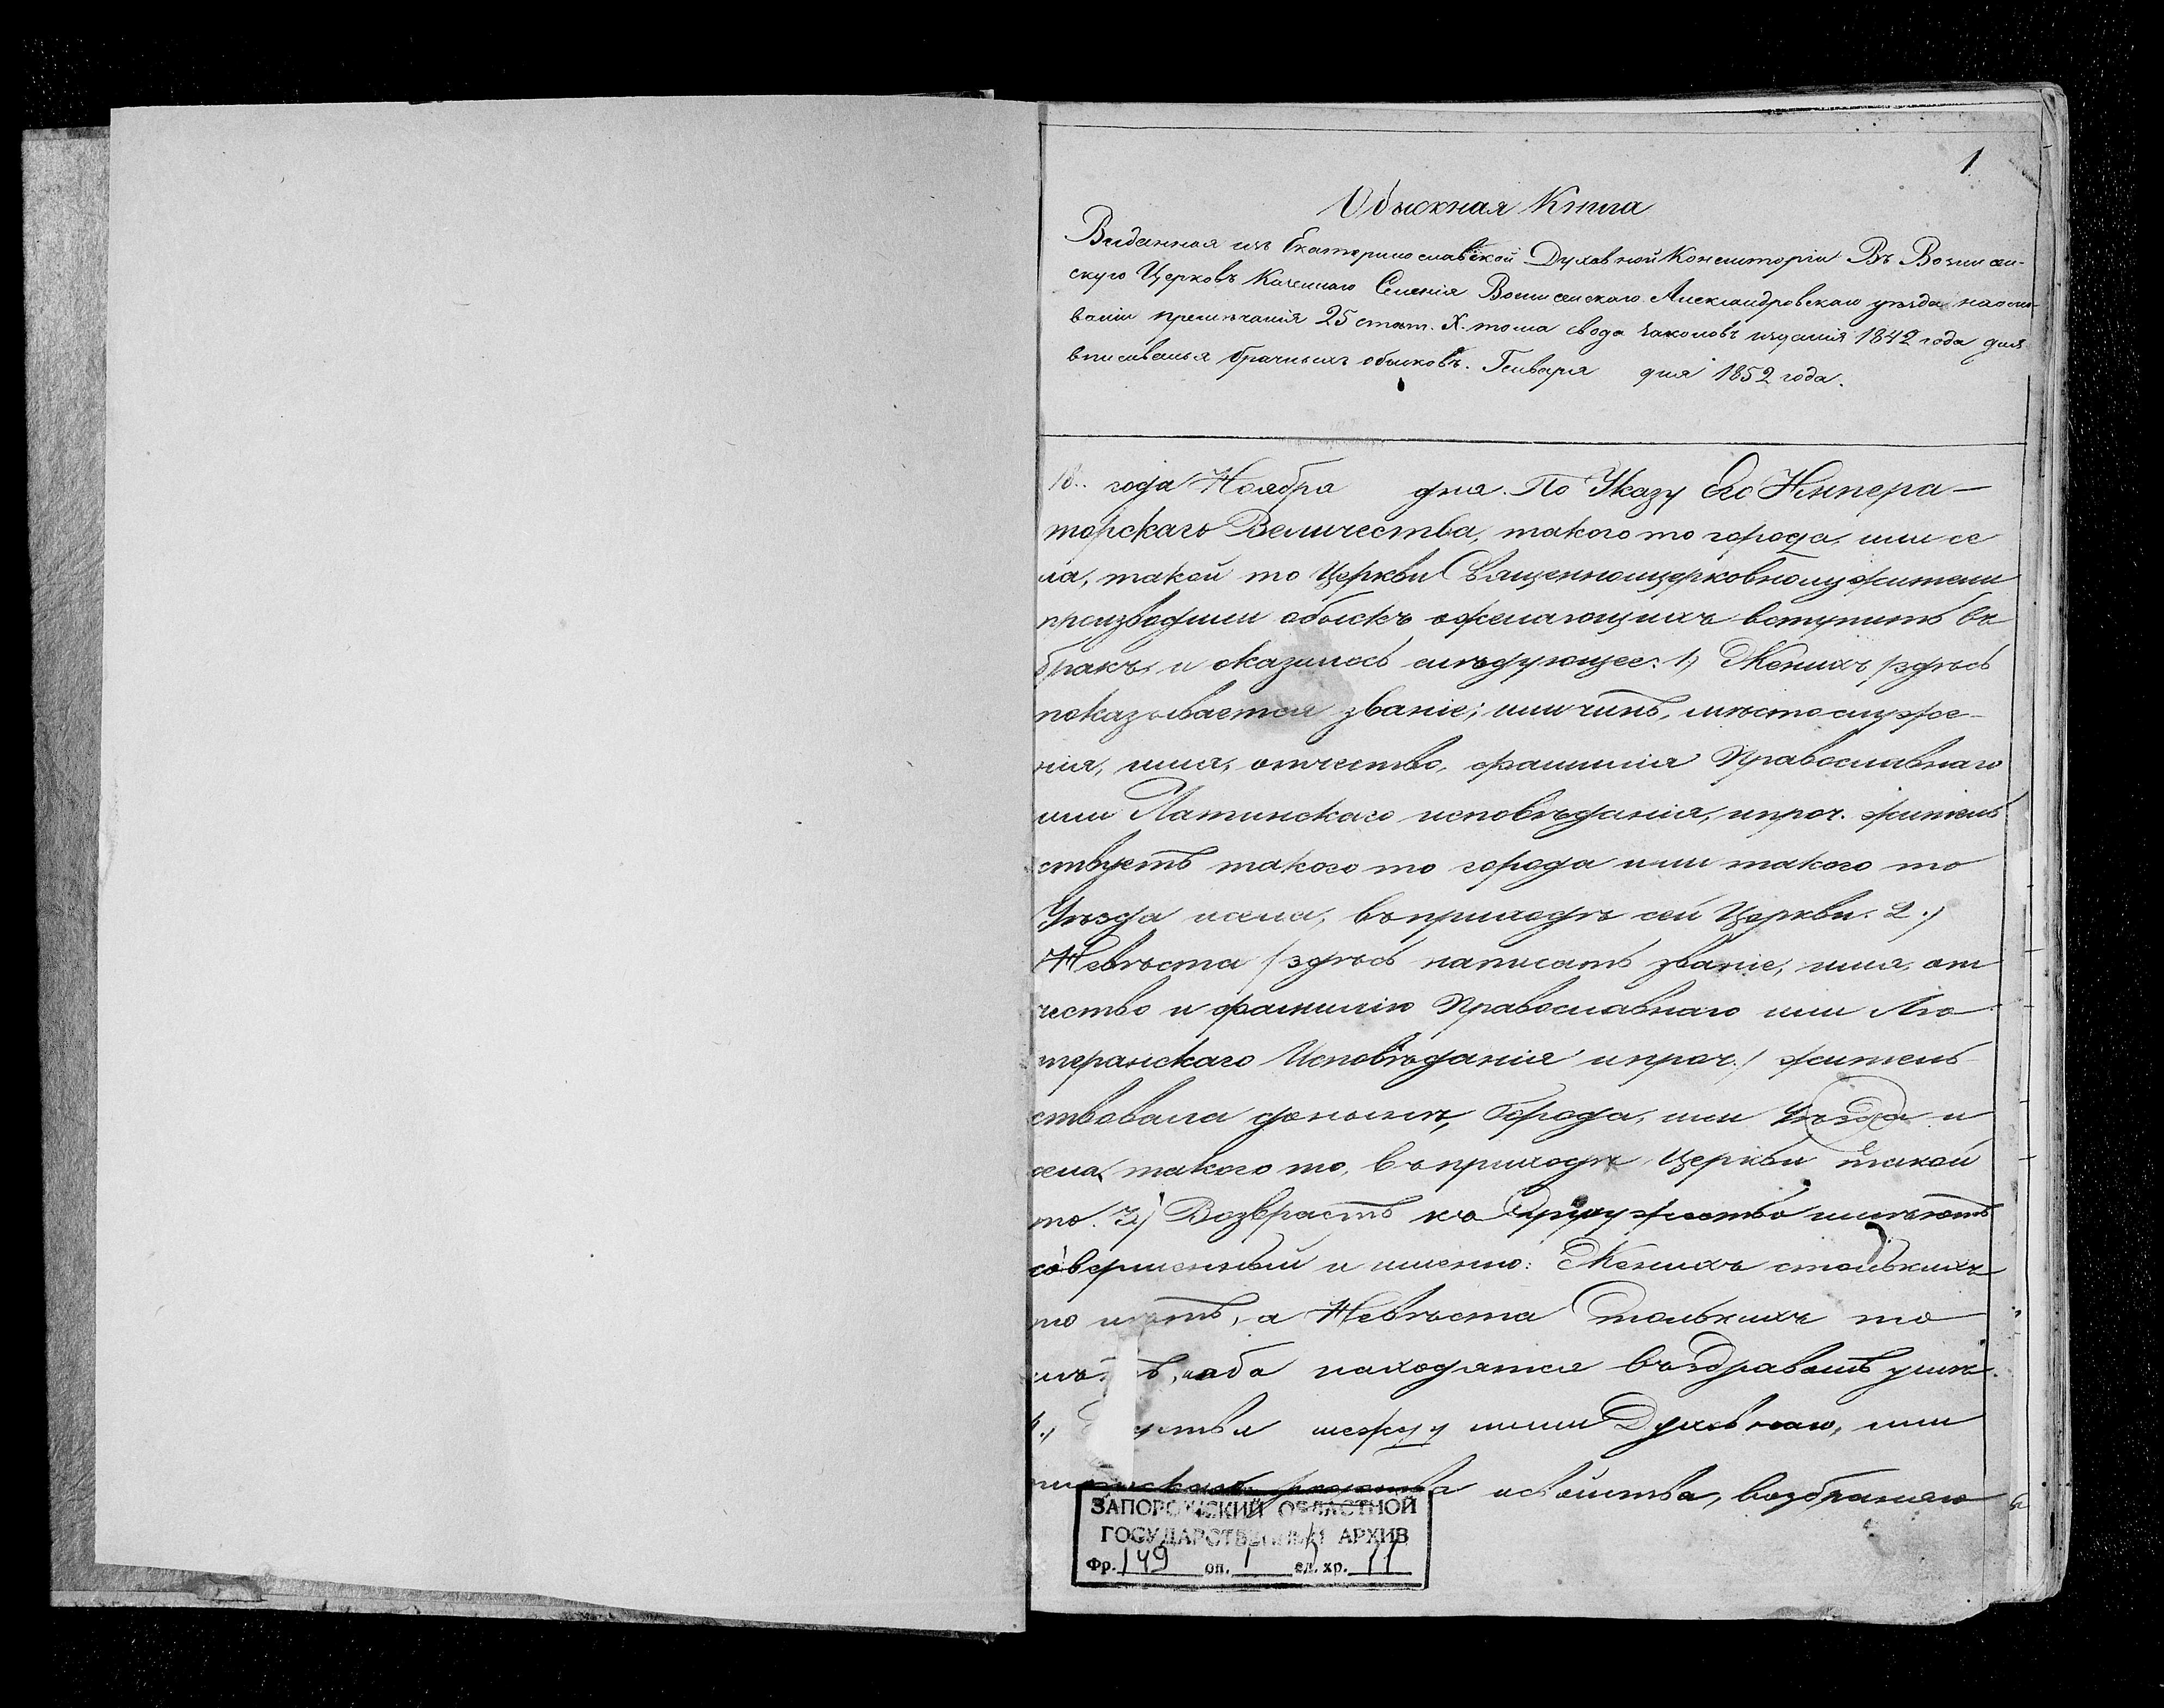 1
Обыскная Книга
Виданная изъ Екатеринославской Духовной Консисторіи Въ Вознесен-
скую Церковъ Казеннаго Селенія Вознесенскаго Александровскаго уѣзда на осно-
ваніи примѣчанія 25 стат. X. тома свода законовъ изданія 1842 года для
вписыванья брачныхъ обысковъ. Генваря дня 1852 года.
18.. года Ноября дня. По Указу Его Импера-
торскаго Величества, такого то города, или се
ла, такой то Церкви Священноцерковнослужители
производили обыскъ о желающихъ вступить въ
бракъ, и оказалось слѣдующее: 1) Женихъ /здѣсь
показывается званіе; или чинъ, мѣсто служе-
нія, имя, отчество, фамилія Православнаго
или Латинскаго исповѣданія, и проч. житель
ствуетъ такого то города или такого то
Уѣзда и села, въ приходѣ сей Церкви. 2.)
Невѣста /здѣсь написать званіе, имя, от
чество и фамилію Православнаго или Лю
теранскаго Исповѣданія и проч./ житель
ствовала донынѣ, Города, или Уѣзда и
села, такого то, въ приходѣ Церкви такой
то. 3) Возврастъ къ супружеству имѣютъ
совершенный и именно: Женихъ столькихъ
то лѣтъ, а Невѣста столькихъ то
лѣтъ, и оба находятся въ здравомъ умѣ.
4.) между ними Духовнаго, или
родства и свойства, возбраняю
ЗАПОРОЖСКИЙ ОБЛАСТНОЙ
ГОСУДАРСТВЕННЫЙ АРХИВ
Фр. 149 оп. 1 ед. хр. 11